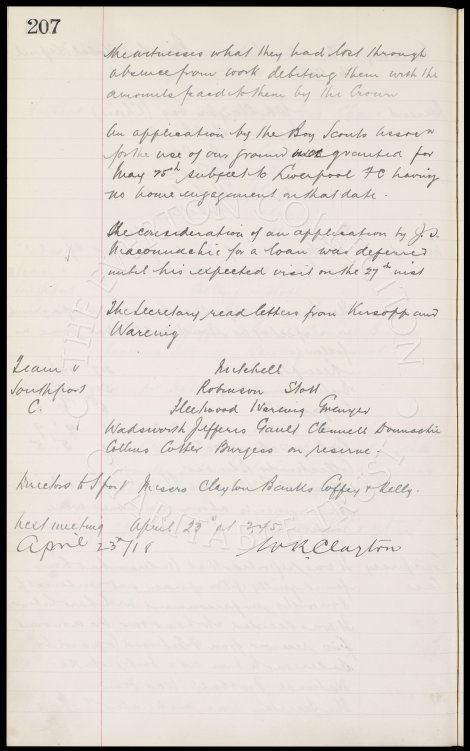 207
the witnesses what they had lost through
absence from work debiting them with the
amounts paid to them by the Crown
An application by the Boy Scouts assocn
for the use of our ground was granted for
May 25th subject to Liverpool F C having
no home engagement on that date
The consideration of an application by J. D.
Maconnachie for a loan was deferred
until his expected visit on the 27th inst
The Secretary read letters from Kirsopp and
Wareing
Team v Mitchell
Southport Robinson Stott
C. Fleetwood Wareing Grenyer
Wadsworth Jefferis Gault Clennell Donnachie
Collins Cotter Burgess on reserve.
Directors to Sport Messrs Clayton Banks Coffey & Kelly.
Next meeting April 23d at 3.45
April 23d/18 W R Clayton
THE EVERTON COLLECTION CHARITABLE TRUST